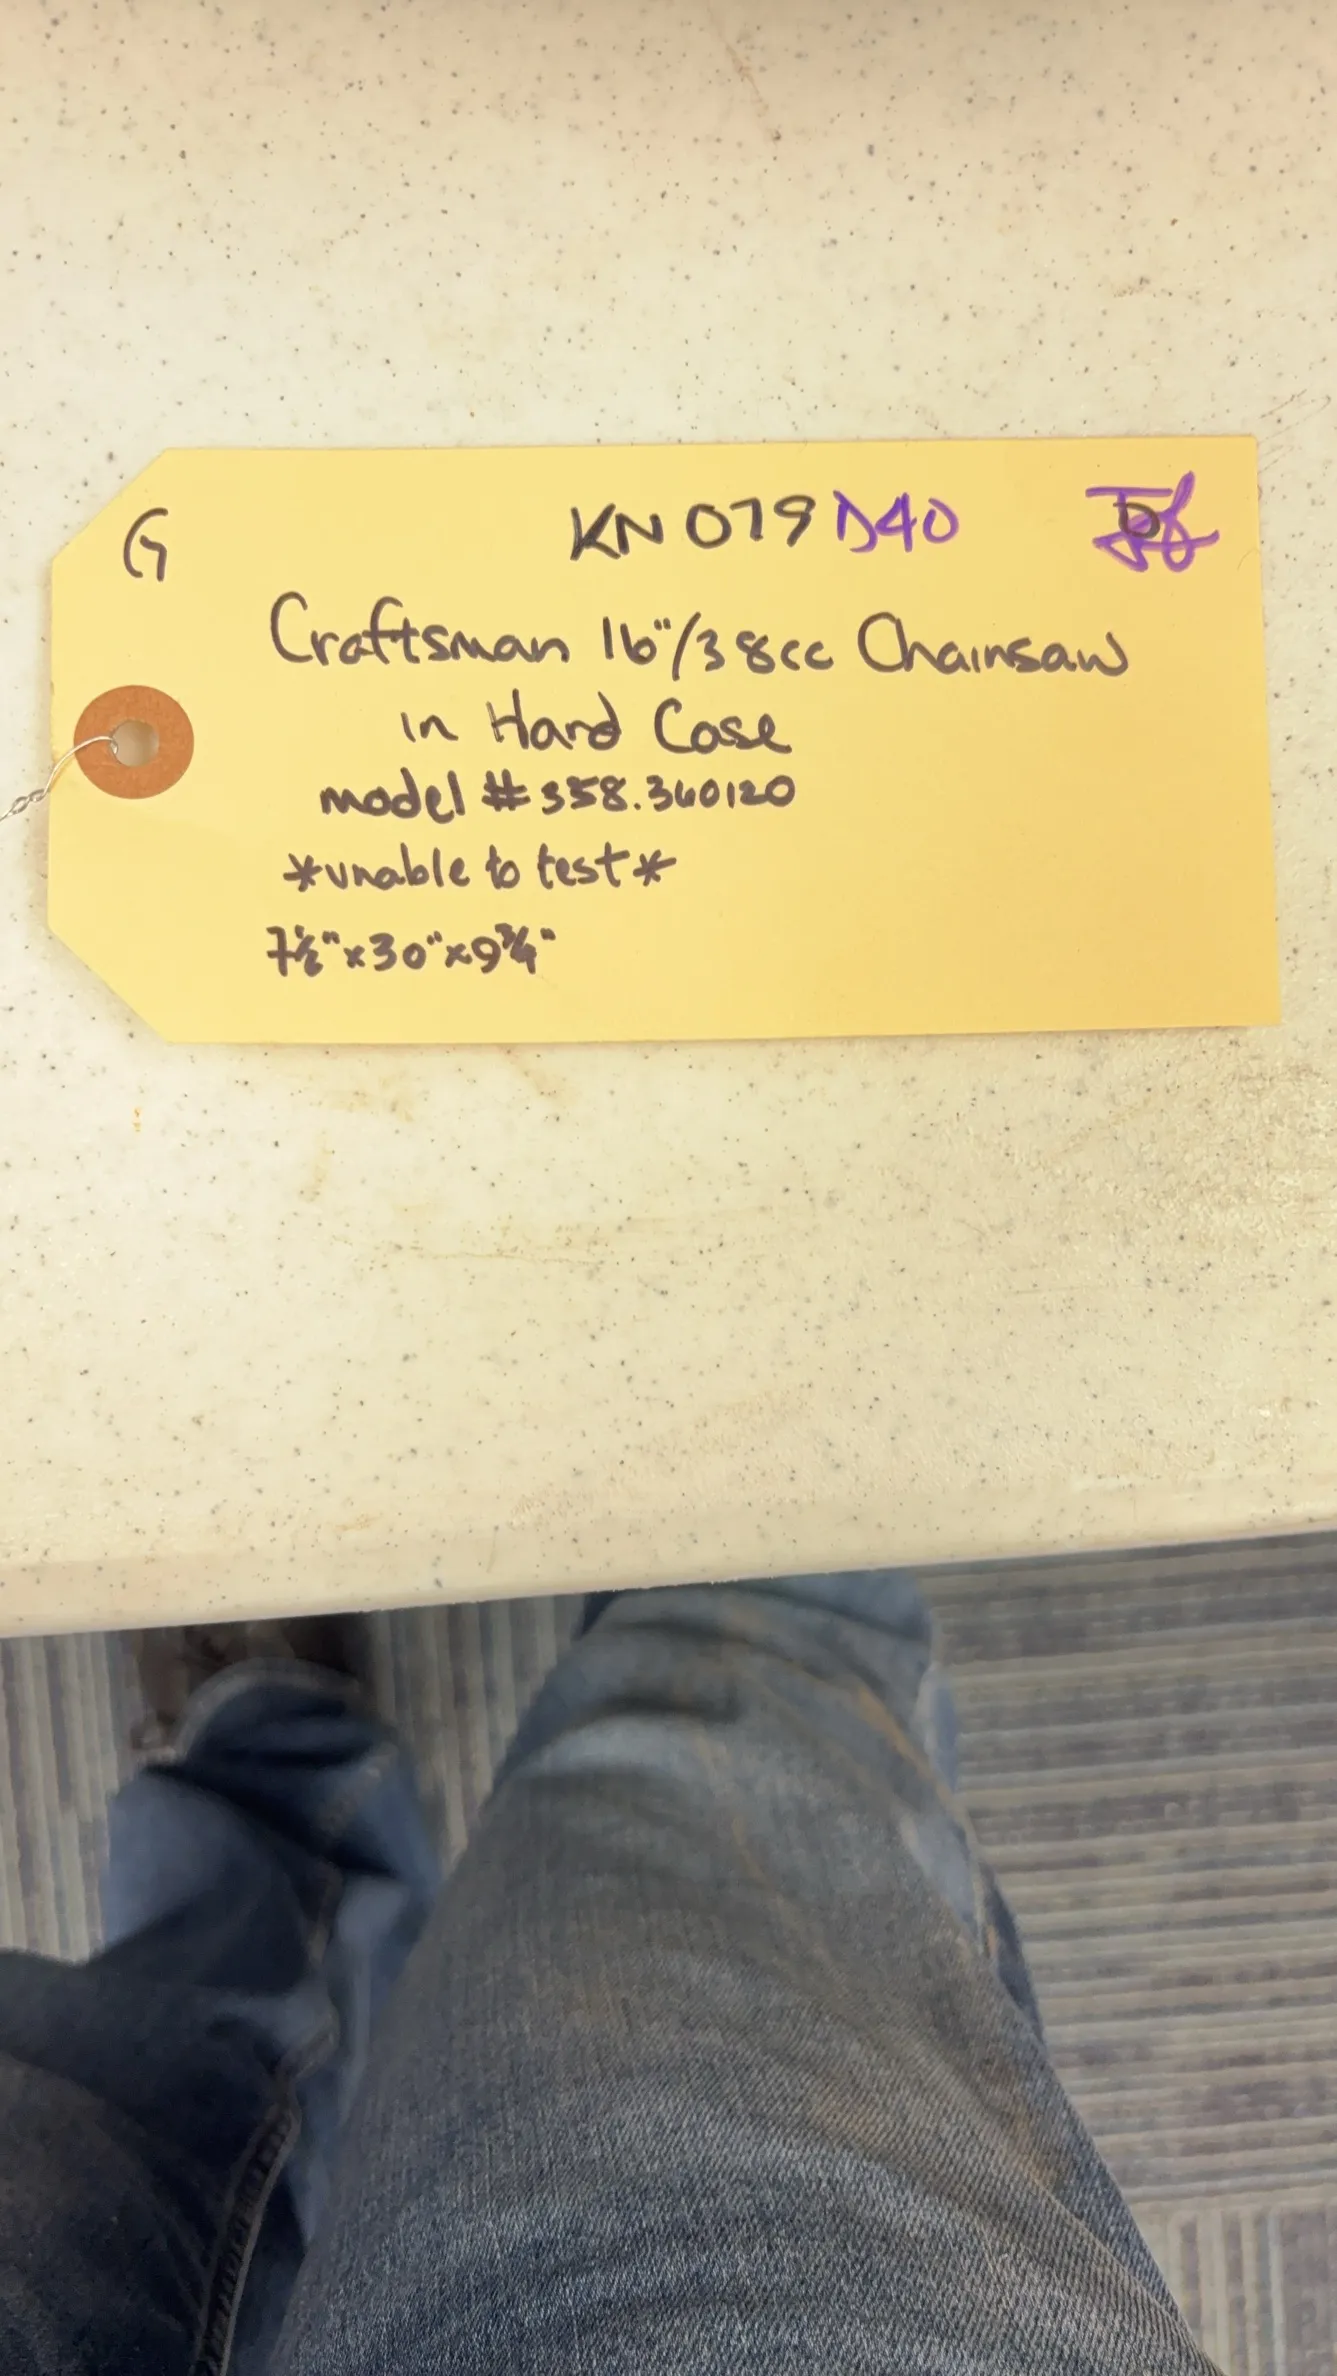 G KN079 D40
Craftsman 16"/38cc Chainsaw
in Hard Case
model #358.360120
*unable to test*
7½"x30"x9¾"